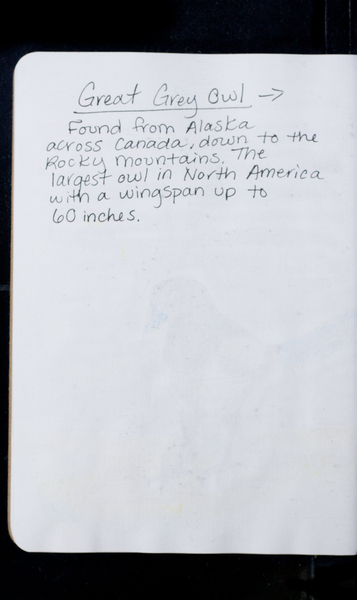 Great Grey Owl →
Found from Alaska
across Canada, down to the
Rocky mountains. The
largest owl in North America
with a wingspan up to
60 inches.